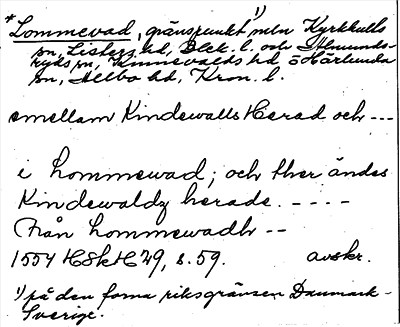 *Lommevad, gränspunkt 1) mln Kyrkhults
sn, Listers hd, Blek. l. och Almunds-
ryds sn, Kinnevalds hd o Härlunda
sn, Allbo hd, Kron. l.
emellam Kindewalls Herad och ---
i hommewad; och ther ändes
Kindewaldz herade. - - - -
Från hommewadh --
1554 HSkH 29, s. 59. avskr.
1) på den forna riksgränsen Danmark-
Sverige.